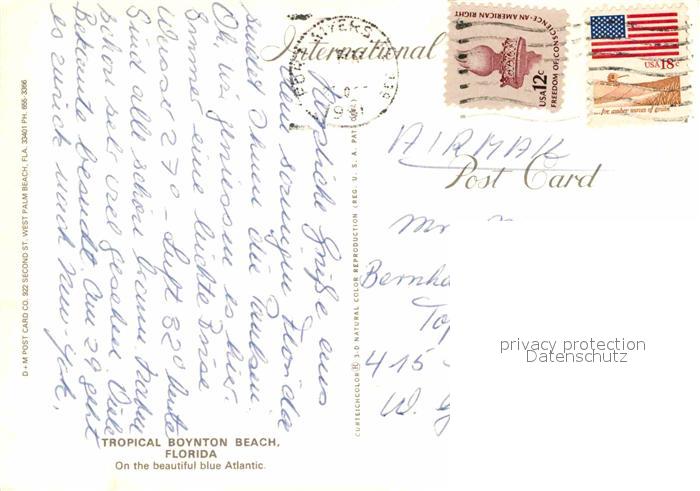 International
Post Card
FORT MYERS, FL
AN AMERICAN RIGHT
FREEDOM OF CONSCIENCE
USA 12c
USA 18c
...for amber waves of grain
AIRMAIL
Herzliche Grüße aus
dem sonnigen Florida
senden Ihnen die Tauben.
Oh, wir geniessen es hier.
Immer eine leichte Brise
Wasser 27° – Luft 32° heute
Sind alle schön braun haben
schon sehr viel gesehen. Viele
Bekannte besucht. Am 29. geht
es zurück nach New-York.
Mr
Bernha
To
415-
W. G
D+M POST CARD CO. 322 SECOND ST. WEST PALM BEACH, FLA. 33401 PH. 655-3356
CURTEICHCOLOR ® 3-D NATURAL COLOR REPRODUCTION (REG. U. S. A. PAT. OFF.)
TROPICAL BOYNTON BEACH,
FLORIDA
On the beautiful blue Atlantic.
privacy protection
Datenschutz